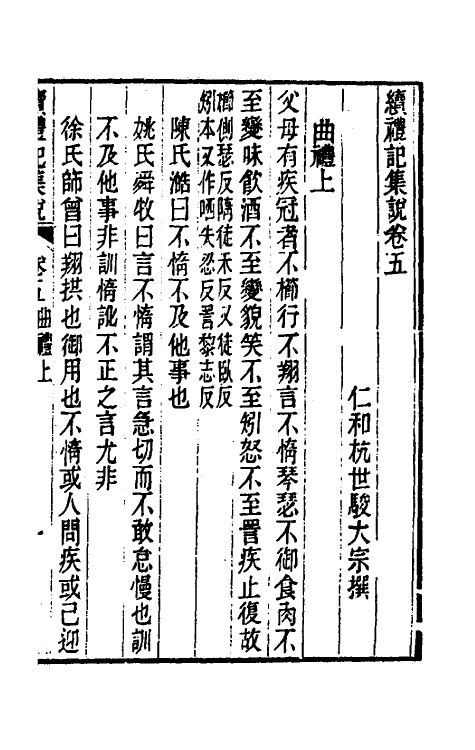 續禮記集說卷五
仁和杭世駿大宗撰
曲禮上
父母有疾冠者不櫛行不翔言不惰琴瑟不御食肉不
至變味飲酒不至變貌笑不至矧怒不至詈疾止復故
櫛側瑟反惰徒禾反又徒臥反
矧本又作哂失忍反詈黎志反
陳氏澔曰不惰不及他事也
姚氏舜牧曰言不惰謂其言急切而不敢怠慢也訓
不及他事非訓惰訛不正之言尤非
徐氏師曾曰翔拱也御用也不惰或人問疾或己迎
續禮記集說
卷五曲禮上
一